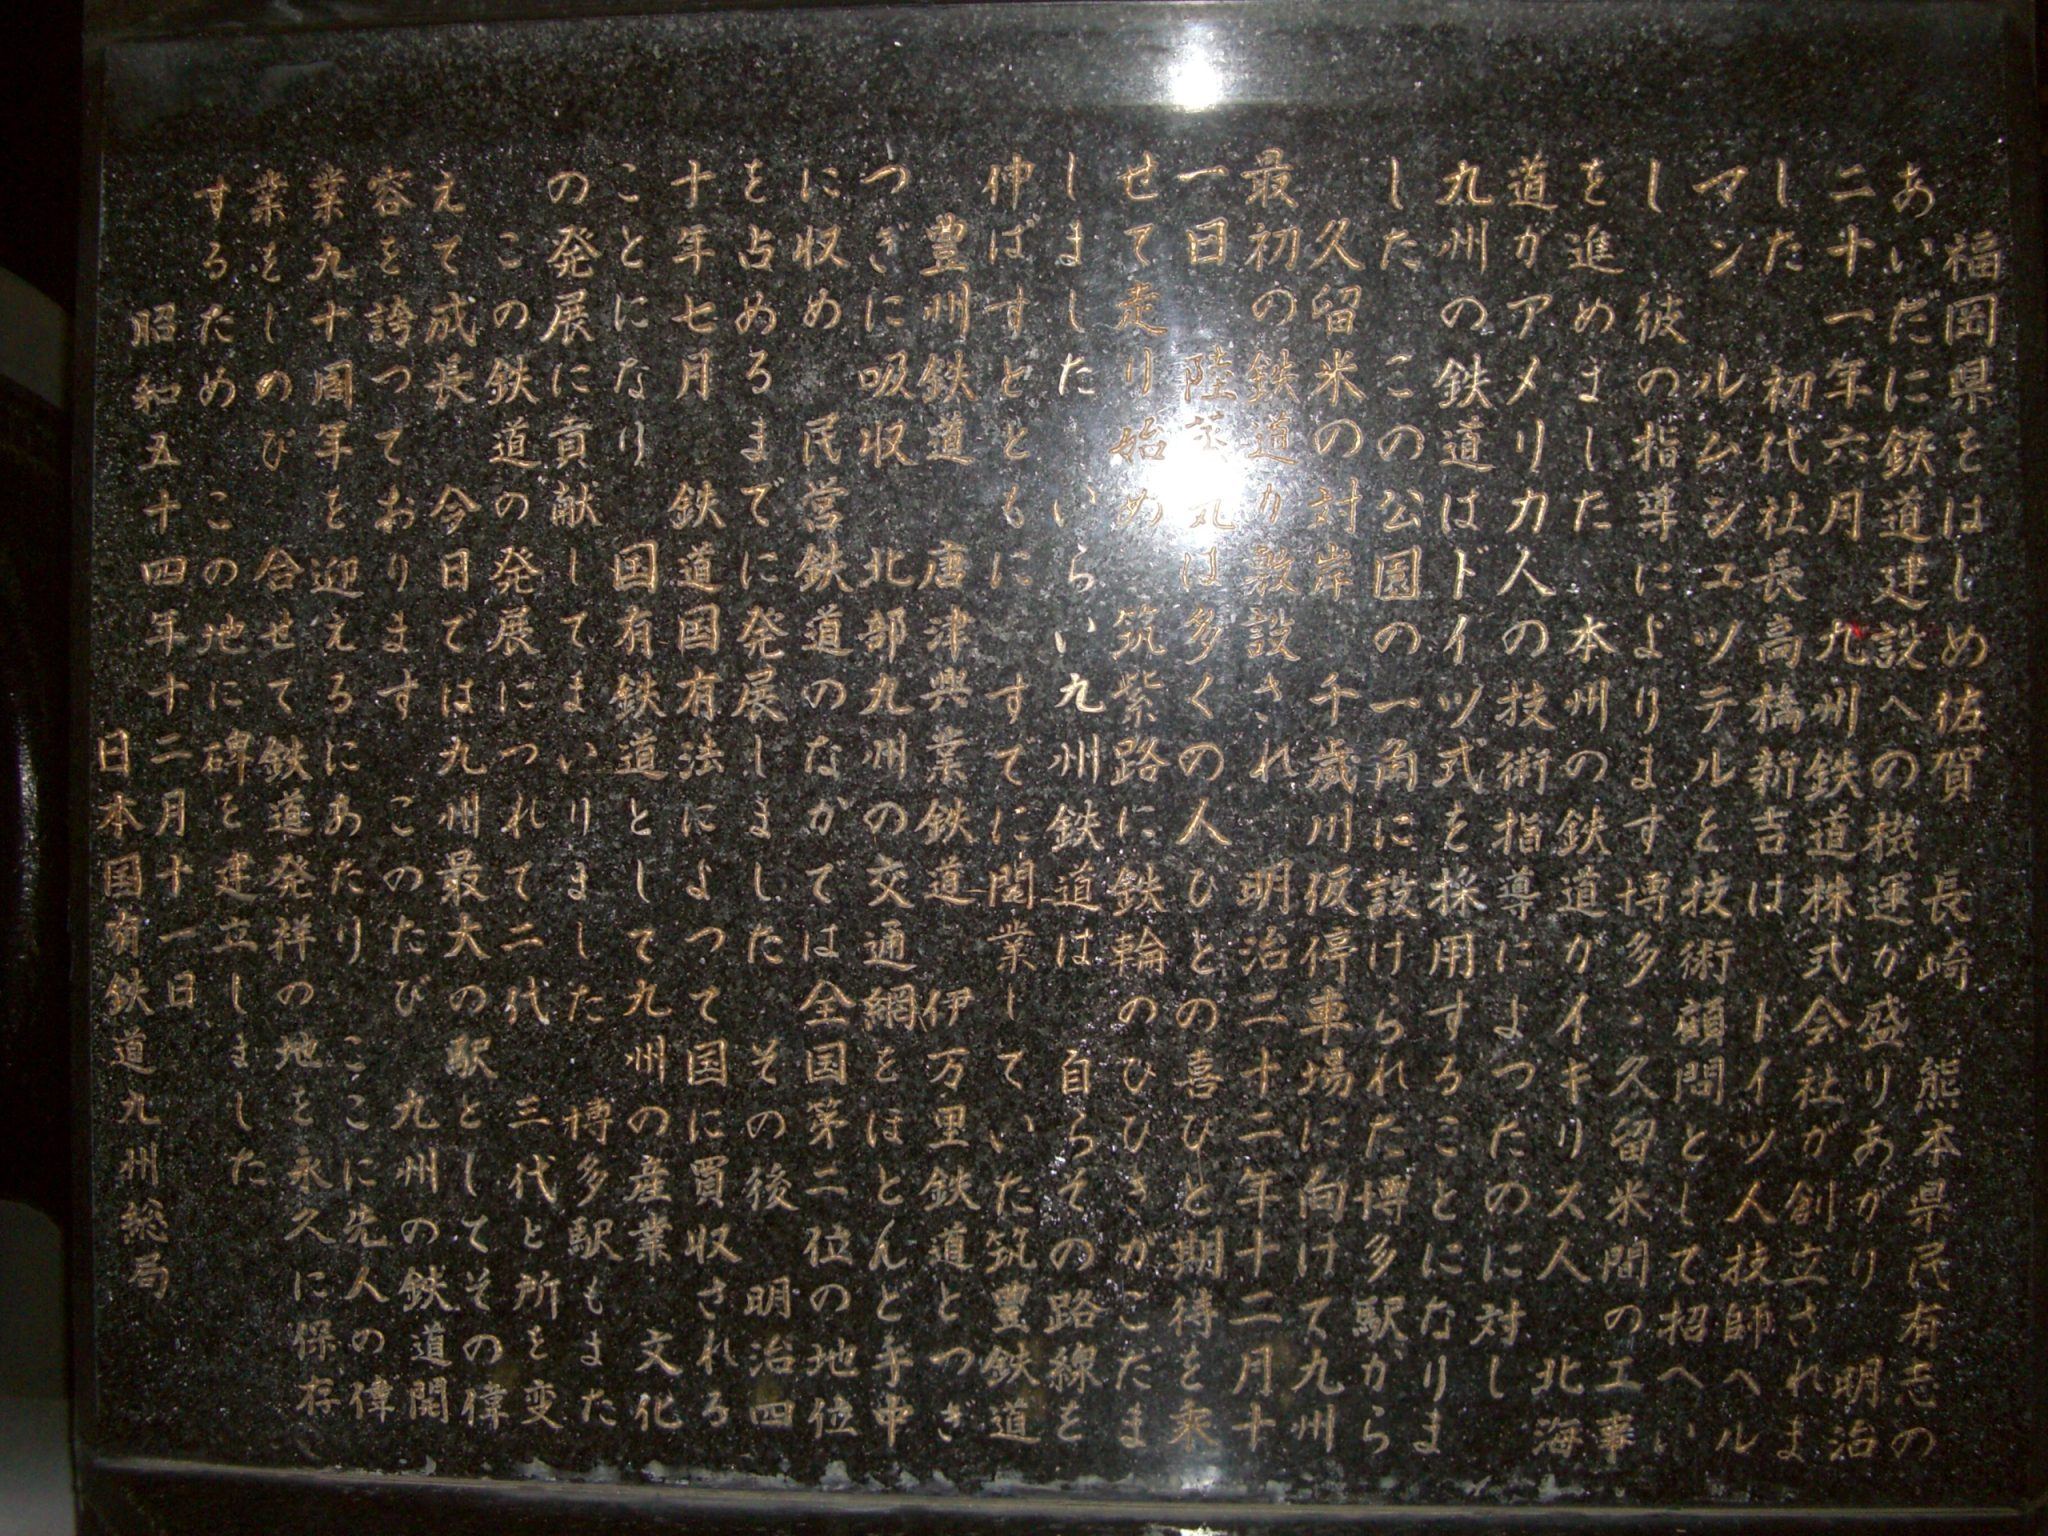 福岡県をはじめ佐賀 長崎 熊本県民有志の
あいだに鉄道建設への機運が盛りあがり 明治
二十一年六月 九州鉄道株式会社が創立されま
した 初代社長高橋新吉は ドイツ人技師ヘル
マン ルムシユツテルを技術顧問として招へい
し 彼の指導によります博多・久留米間の工事
を進めました 本州の鉄道がイギリス人 北海
道がアメリカ人の技術指導によつたのに対し
九州の鉄道はドイツ式を採用することになりま
した この公園の一角に設けられた博多駅から
久留米の対岸 千歳川仮停車場に向けて九州
最初の鉄道が敷設され 明治二十二年十二月十
一日 陸蒸気は多くの人びとの喜びと期待を乗
せて走り始め 筑紫路に鉄輪のひびきがこだま
しました いらい九州鉄道は 自らその路線を
伸ばすとともに すでに開業していた筑豊鉄道
豊州鉄道 唐津興業鉄道 伊万里鉄道とつぎ
つぎに吸収 北部九州の交通網をほとんど手中
に収め 民営鉄道のなかでは全国第二位の地位
を占めるまでに発展しました その後 明治四
十年七月 鉄道国有法によつて国に買収される
ことになり 国有鉄道として九州の産業 文化
の発展に貢献してまいりました 博多駅もまた
この鉄道の発展につれて二代 三代と所を変
えて成長 今日では九州最大の駅としてその偉
容を誇つております このたび 九州の鉄道開
業九十周年を迎えるにあたり ここに先人の偉
業をしのび 合せて鉄道発祥の地を永久に保存
するため この地に碑を建立しました
昭和五十四年十二月十一日
日本国有鉄道九州総局